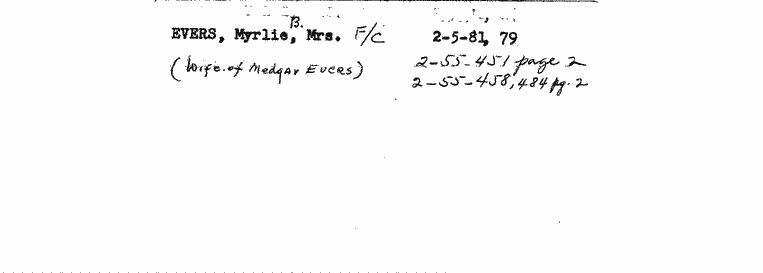 EVERS, Myrlie, B. Mrs. F/C 2-5-81, 79
(Wife of Medgar EVERS) 2-55-451 page 2
2-55-458, 484 pg. 2